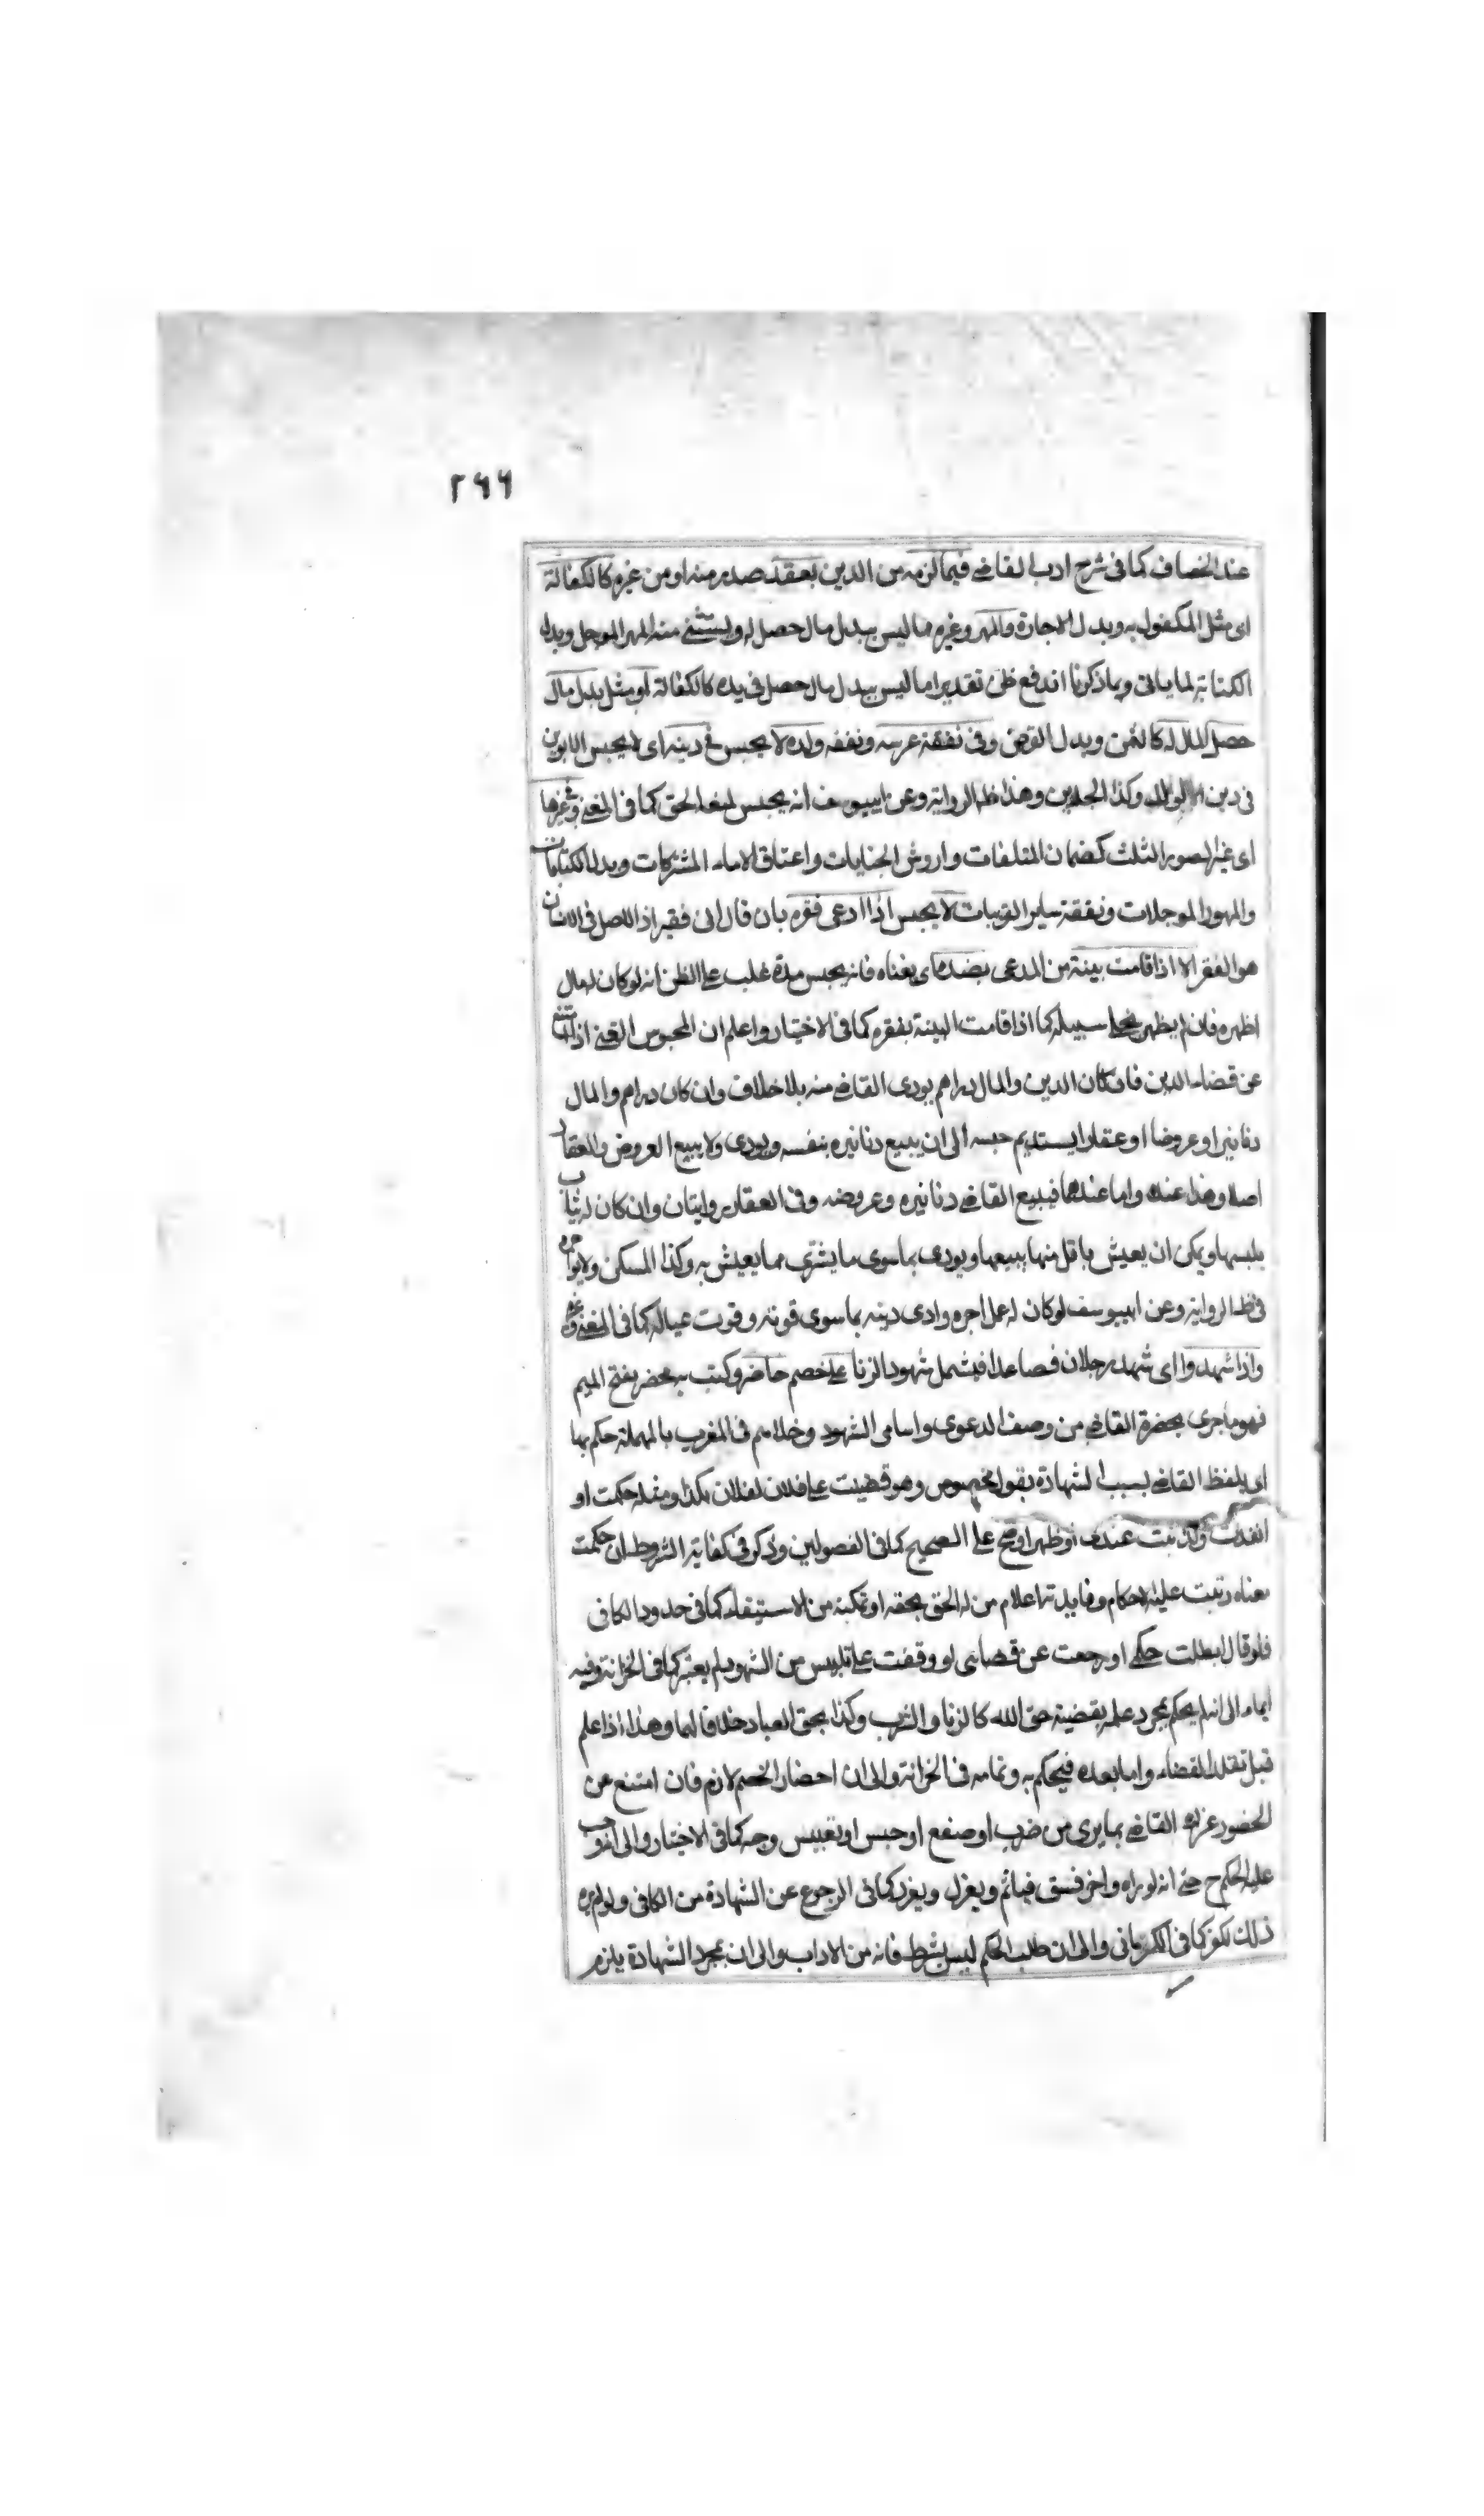 ٢٦٦
عند الخصاف كما فى شرح ادب القاضے فيما لزمه من الدين بعقد صدر منه او من غيره كالكفالة
اى مثل المكفول به وبدل الاجارة والمهر وغيره مما ليس ببدل مال حصل له ويستثنے منه المهر الموجل وبدل
الكتابة لما ياتى وبما ذكرنا اندفع ظن تقديرا ما ليس ببدل مال حصل فى يده كالكفالة او مثل بدل مال
حصل المال له كالثمن وبدل القرض وفى نفقة عرسه ونفقه ولده لا يحبس فے دينه اى لا يحبس الابوين
فى دين الولد وكذا الجدين وهذا ظ الرواية وعن ابيوسف انه يحبس لمنع الحق كما فى المغنے وفے غيرها
اى غير الصور الثلث كضمان المتلفات واروش الجنايات واعتاق الاماء المشتركات وبدل الكتابات
والمهور الموجلات ونفقة ساير القريبات لا يحبس اذا ادعى فقره بان قال انى فقير اذ الاصل فى الانسان
هو الفقر الا اذا قامت بينة من المدعى بضده اى بغناه فانه يحبس مدة غلب على الظن انه لو كان له مال
اظهره فان لم يظهر يخلے سبيله كما اذا قامت البينة بفقره كما فى الاختيار واعلم ان المحبوس الغنے اذا امتنع
عن قضاء الدين فان كان الدين والمال دراهم يودى القاضے منه بلا خلاف وان كان دراهم والمال
دنانير او عروضا او عقارا يستديم حبسه الى ان يبيع دنانيره بنفسه ويودى ولا يبيع العروض والعقار
اصلا وهذا عنده واما عندهما فيبيع القاضے دنانيره وعروضه وفى العقار روايتان وان كان له ثياب
يلبسها ويمكن ان يعيش باقل منها يبيعها ويودى بما سوى ما يشترى مما يعيش به وكذا المسكن ولا يواجره
فى ظ الرواية وعن ابيوسف لو كان له عمل اجره وادى دينه بما سوى قوته وقوت عياله كما فى المغنے وغيره
واذا شهدوا اى شهد رجلان فصاعدا فيشمل شهود الزنا على خصم حاضر وكتب به محضر بفتح الميم
فهو ما جرى بحضرة القاضے من وصف الدعوى واسامى الشهود وخلاصهم فى المغرب بالمهملة حكم بها
اى يلفظ القاضے بسبب الشهادة بقول مخصوص وهو قضيت على فلان لفلان بكذا ومثله حكمت او
انفذت وكذا ثبت عندى او ظهر او صح على الصحيح كما فى الفصولين وذكر فى كفاية الشروط ان حكمت
معناه رتبت عليه الاحكام وفايدته اعلام من له الحق بحقه او تمكينه من الاستيفاء كما فى حدود الكافى
فلو قال ابطلت حكمے او رجعت عن قضائى او وقفت على تلبيس من الشهود لم يعتبر كما فى الخزانة وفيه
ايماء الى انه لم يحكم بمجرد علمه بقضية حق الله كالزنا والشرب وكذا بحق العباد خلافا لهما وهذا اذا علم
قبل تقلد القضاء واما بعده فيحكم به وتمامه فى الخزانة والى ان احضار الخصم لازم فان امتنع عن
الحضور عزره القاضے بما يرى من ضرب او صفع او حبس او تعبيس وجه كما فى الاختيار والى انه وجب
عليه الحكم ح حتے انه لو راه واخر فسق فياثم ويعزل ويعزر كما فى الرجوع عن الشهادة من الكافى ولو لم يره
ذلك كفر كما فى الكرمانى والى ان طلب الحكم ليس بشرط فانه من الاداب والى ان بمجرد الشهادة يلزم